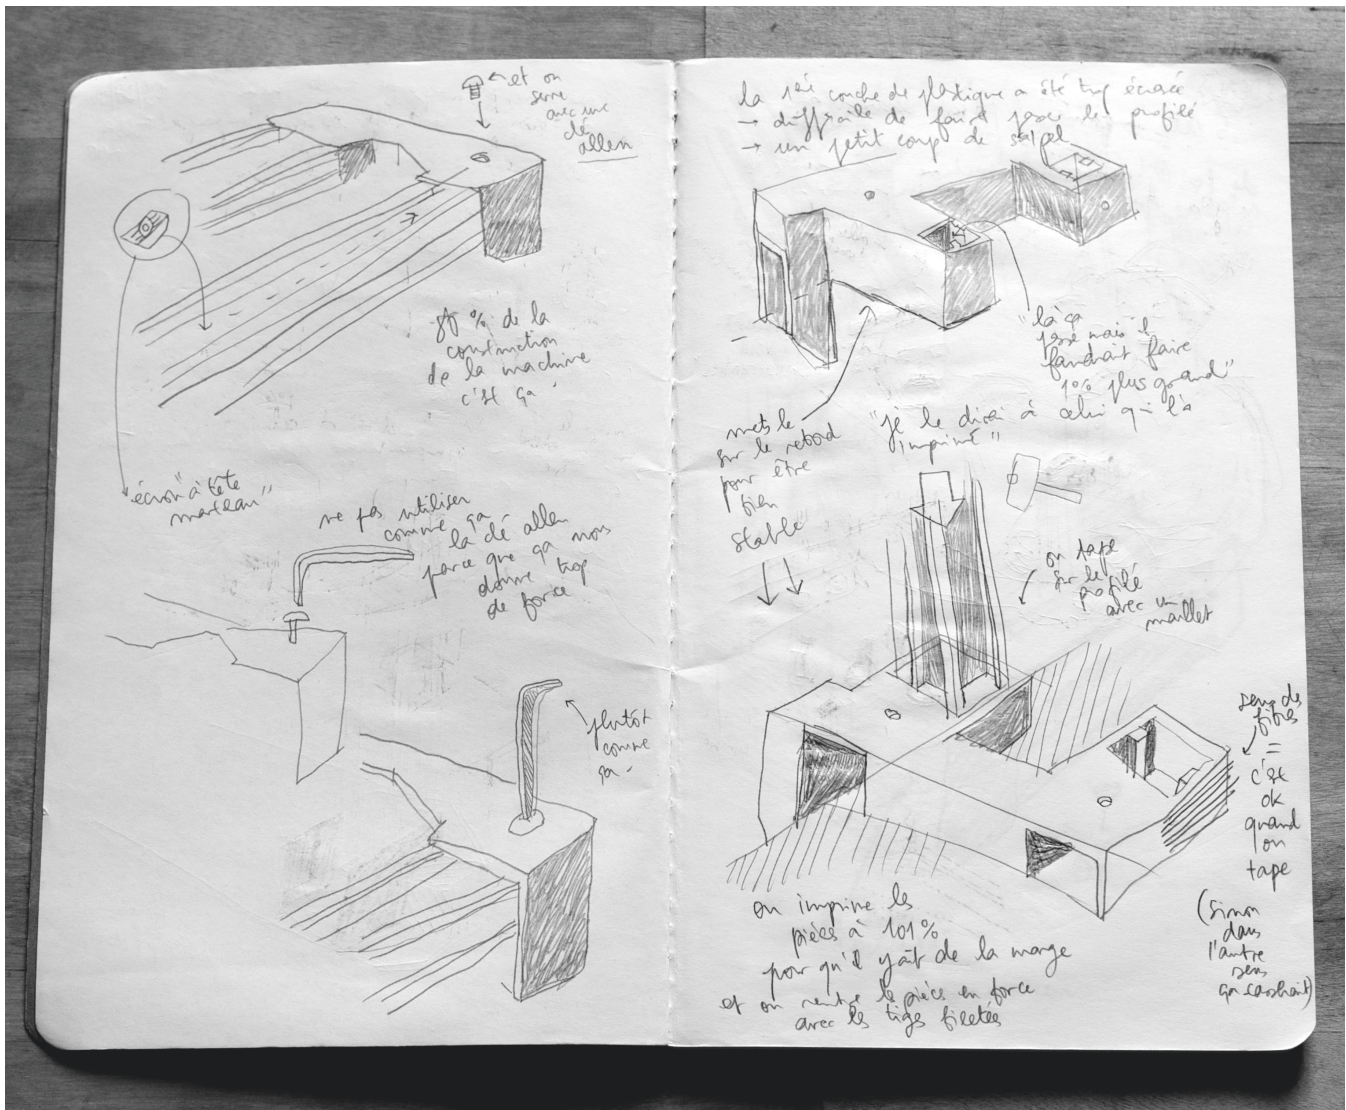 et on
serre
avec une
clé
allen
% de la
construction
de la machine
c'est ça
écrou "à tête
marteau"
ne pas utiliser
comme ça
la clé allen
parce que ça nous
donne trop
de force
plutôt
comme
ça
la 1ère couche de plastique a été trop écrasée
→ difficile de faire passer les profilé
→ un petit coup de scalpel
"là ça
passe mais il
faudrait faire
1% plus grand"
"je le dirai à celui qui l'a
imprimé"
mets le
sur le rebord
pour être
bien
stable"
on tape
sur le
profilé
avec un
maillet
sens des
fibres
=
c'est
ok
quand
on
tape
(sinon
dans
l'autre
sens
ça casserait)
on imprime les
pièces à 101%
pour qu'il y ait de la marge
et on rentre les pièces en force
avec les tiges filetées